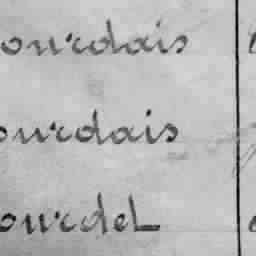 ourdais
ourdais
ourdel